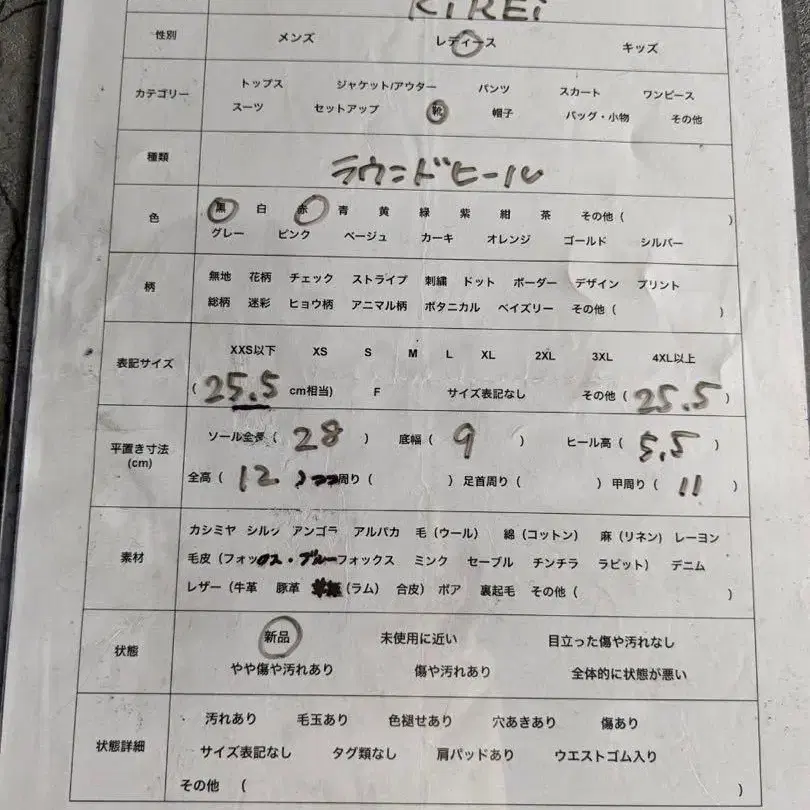 KiREi
性別 メンズ レディース キッズ
カテゴリー トップス ジャケット/アウター パンツ スカート ワンピース
スーツ セットアップ 靴 帽子 バッグ・小物 その他
種類 ラウンドヒール
色 黒 白 赤 青 黄 緑 紫 紺 茶 その他( )
グレー ピンク ベージュ カーキ オレンジ ゴールド シルバー
柄 無地 花柄 チェック ストライプ 刺繍 ドット ボーダー デザイン プリント
総柄 迷彩 ヒョウ柄 アニマル柄 ボタニカル ペイズリー その他( )
表記サイズ XXS以下 XS S M L XL 2XL 3XL 4XL以上
(25.5 cm相当) F サイズ表記なし その他(25.5)
平置き寸法 (cm) ソール全長(28) 底幅(9) ヒール高(5.5)
全高(12. 周り( ) 足首周り( ) 甲周り(11)
素材 カシミヤ シルク アンゴラ アルパカ 毛(ウール) 綿(コットン) 麻(リネン) レーヨン
毛皮(フォックス・ブルーフォックス ミンク セーブル チンチラ ラビット) デニム
レザー(牛革 豚革 (ラム) 合皮) ボア 裏起毛 その他( )
状態 新品 未使用に近い 目立った傷や汚れなし
やや傷や汚れあり 傷や汚れあり 全体的に状態が悪い
状態詳細 汚れあり 毛玉あり 色褪せあり 穴あきあり 傷あり
サイズ表記なし タグ類なし 肩パッドあり ウエストゴム入り
その他 (